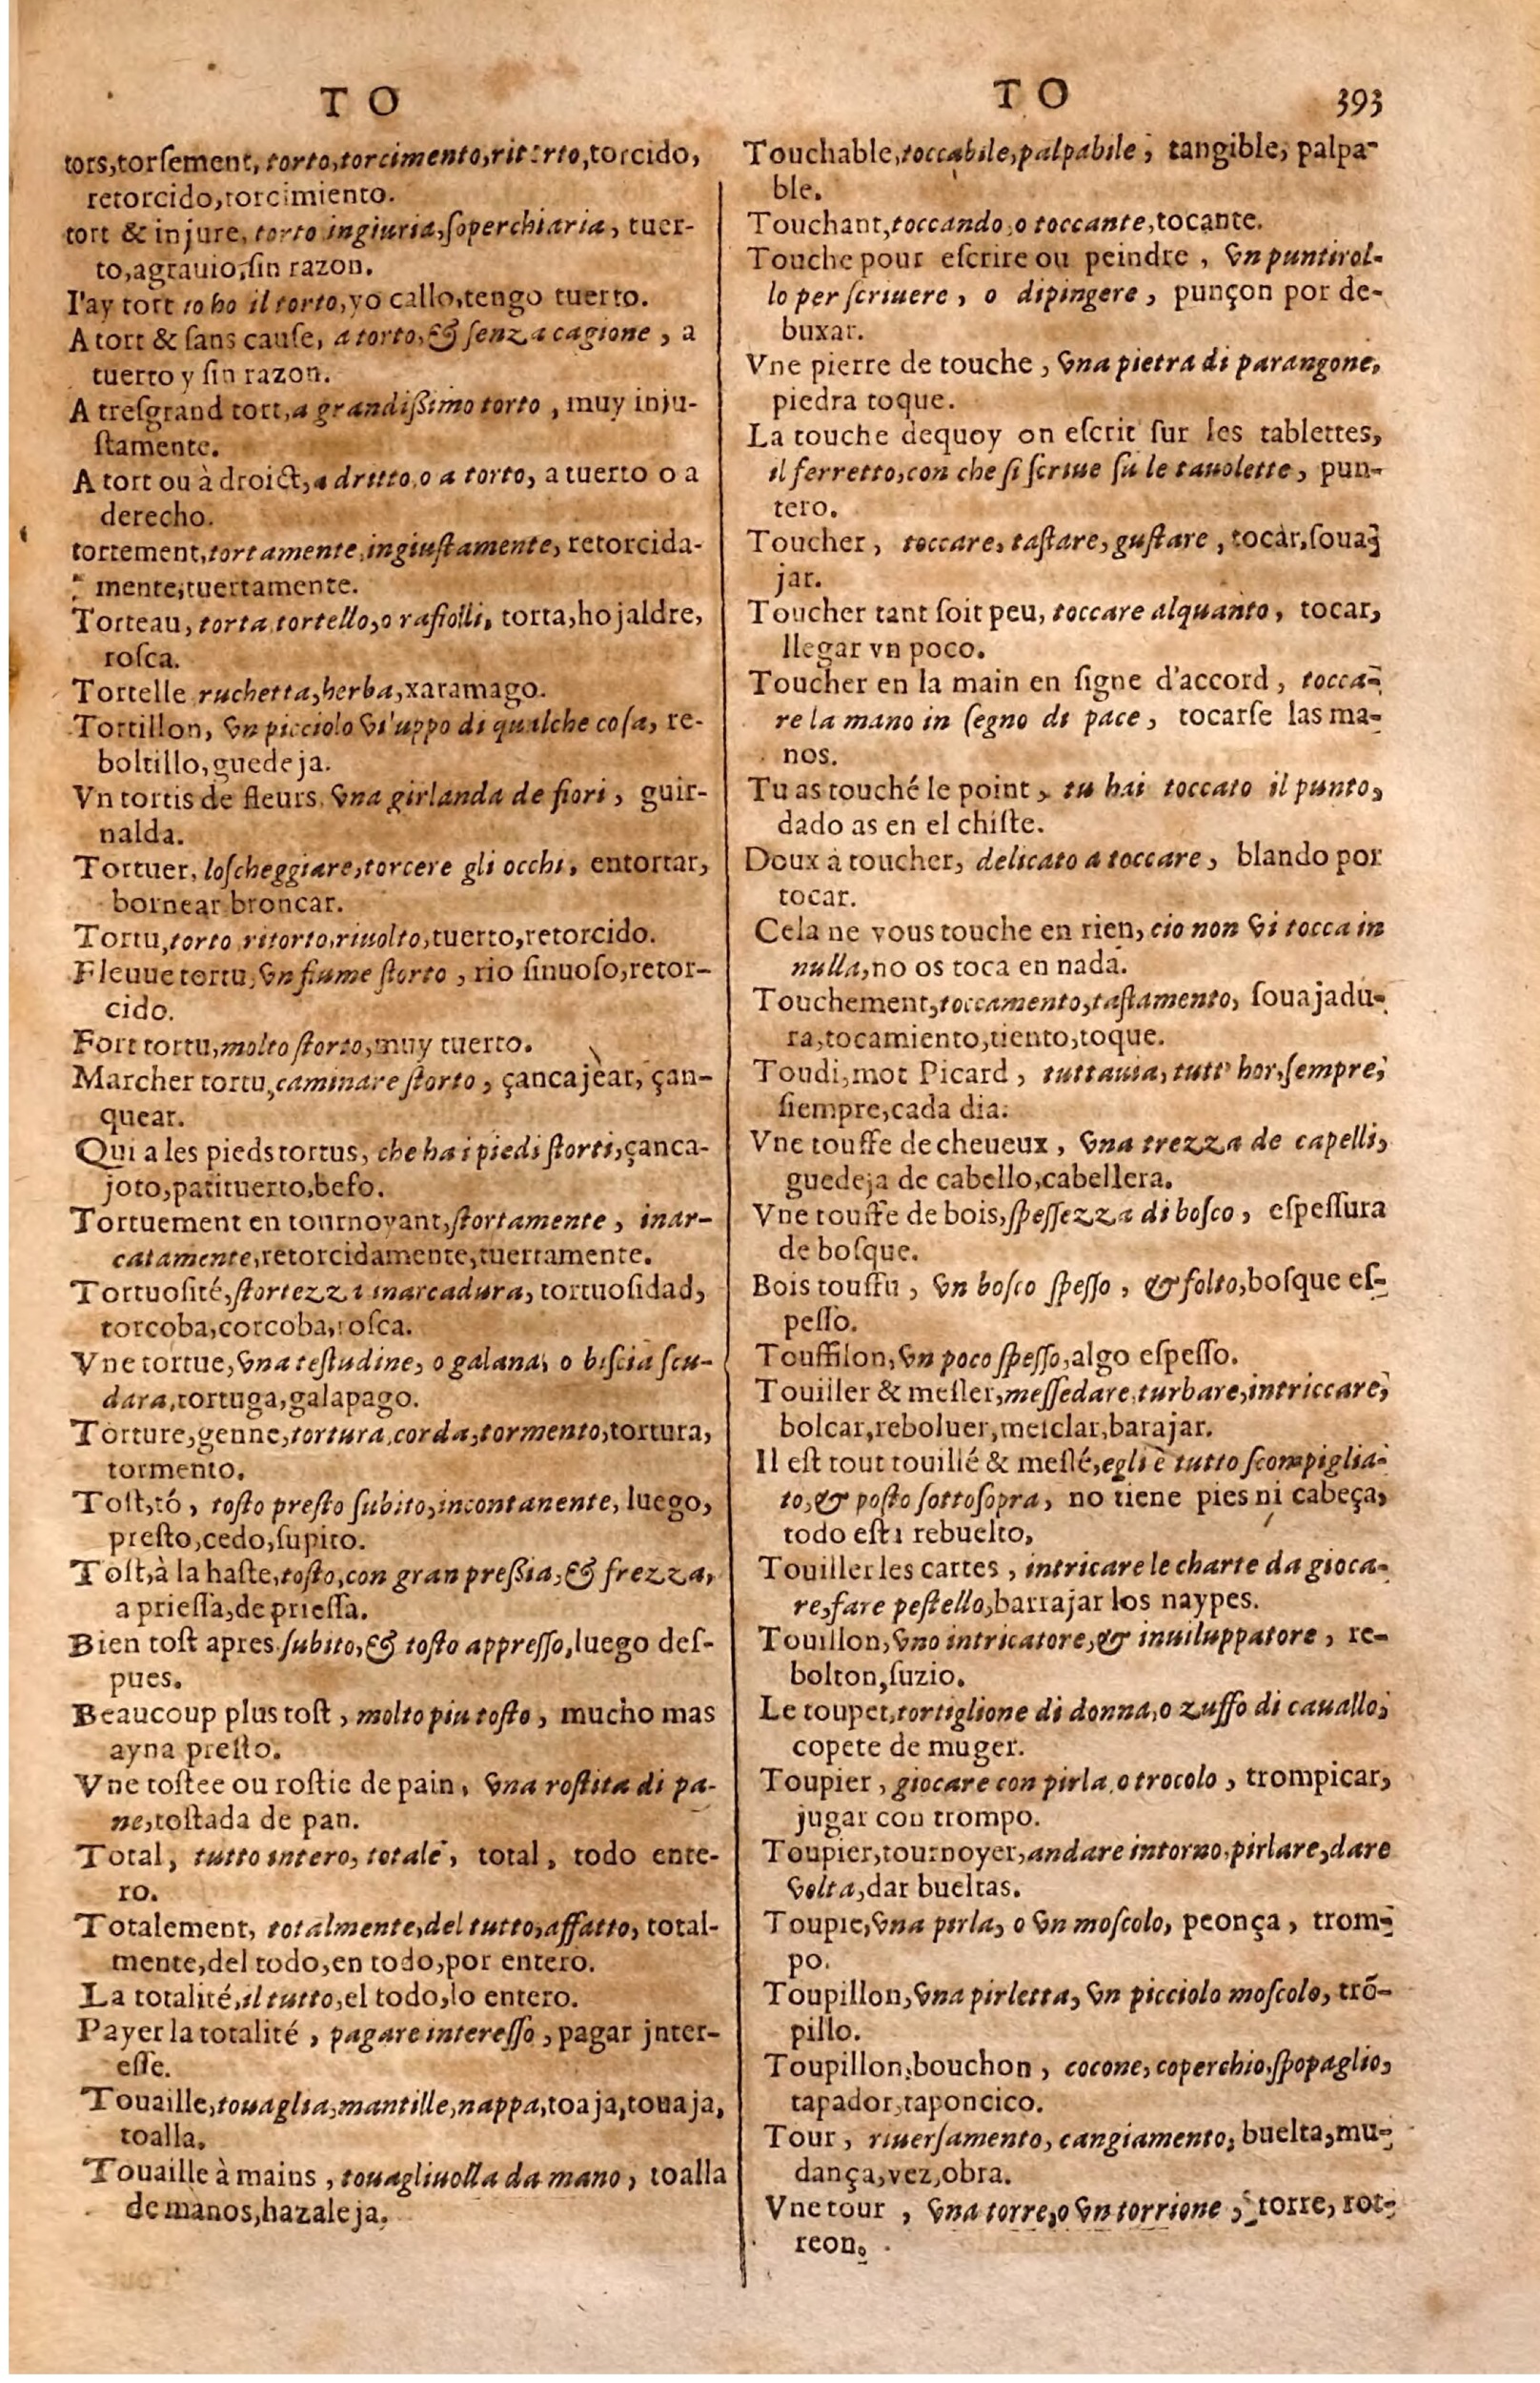 T O
tors,torſement, torto,torcimento,ritorto,torcido,
retorcido,torcimiento.
tort & injure, torto ingiuria,ſoperchiaria, tuer-
to,agrauio,ſin razon.
I'ay tort io ho il torto,yo callo,tengo tuerto.
A tort & ſans cauſe, a torto,& ſenza cagione, a
tuerto y ſin razon.
A treſgrand tort,a grandißimo torto, muy inju-
ſtamente.
A tort ou à droict,a dritto,o a torto, a tuerto o a
derecho.
tortement,tortamente,ingiuſtamente, retorcida-
mente,tuertamente.
Torteau, torta tortello,o rafiolli, torta,hojaldre,
roſca.
Tortelle ruchetta,herba,xaramago.
Tortillon, vn picciolo viluppo di qualche coſa, re-
boltillo,guedeja.
Vn tortis de fleurs, vna girlanda de fiori, guir-
nalda.
Tortuer, loſcheggiare,torcere gli occhi, entortar,
bornear broncar.
Tortu,torto ritorto,riuolto,tuerto,retorcido.
Fleuue tortu,vn fiume ſtorto, rio ſinuoſo,retor-
cido.
Fort tortu,molto ſtorto,muy tuerto.
Marcher tortu,caminare ſtorto, çancajear, çan-
quear.
Qui a les pieds tortus, che ha i piedi ſtorti,çanca-
joto,patituerto,befo.
Tortuement en tournoyant,ſtortamente, inar-
catamente,retorcidamente,tuertamente.
Tortuoſité,ſtortezza inarcadura, tortuoſidad,
torcoba,corcoba,roſca.
Vne tortue,vna teſtudine, o galana, o biſcia ſcu-
dara,tortuga,galapago.
Torture,genne,tortura,corda,tormento,tortura,
tormento.
Toſt,tó, toſto preſto ſubito,incontanente, luego,
preſto,cedo,ſupito.
Toſt,à la haſte,toſto,con gran preßia,& frezza,
a prieſſa,de prieſſa.
Bien toſt apres ſubito,& toſto appreſſo,luego deſ-
pues.
Beaucoup plus toſt, molto piu toſto, mucho mas
ayna preſto.
Vne toſtee ou roſtie de pain, vna roſtita di pa-
ne,toſtada de pan.
Total, tutto intero, totale, total, todo ente-
ro.
Totalement, totalmente,del tutto,affatto, total-
mente,del todo,en todo,por entero.
La totalité,il tutto,el todo,lo entero.
Payer la totalité, pagare intereſſo, pagar jnter-
eſſe.
Touaille,touaglia,mantille,nappa,toaja,touaja,
toalla.
Touaille à mains, touagliuolla da mano, toalla
de manos,hazaleja.
T O 393
Touchable,toccabile,palpabile, tangible, palpa-
ble.
Touchant,toccando,o toccante,tocante.
Touche pour eſcrire ou peindre, vn puntirol-
lo per ſcriuere, o dipingere, punçon por de-
buxar.
Vne pierre de touche, vna pietra di parangone,
piedra toque.
La touche dequoy on eſcrit ſur les tablettes,
il ferretto,con che ſi ſcriue ſu le tauolette, pun-
tero.
Toucher, toccare, taſtare, guſtare, tocar,ſoua-
jar.
Toucher tant ſoit peu, toccare alquanto, tocar,
llegar vn poco.
Toucher en la main en ſigne d'accord, tocca-
re la mano in ſegno di pace, tocarſe las ma-
nos.
Tu as touché le point, tu hai toccato il punto,
dado as en el chiſte.
Doux a toucher, delicato a toccare, blando por
tocar.
Cela ne vous touche en rien, cio non vi tocca in
nulla,no os toca en nada.
Touchement,toccamento,taſtamento, ſouajadu-
ra,tocamiento,tiento,toque.
Toudi,mot Picard, tuttauia, tutt' hor,ſempre,
ſiempre,cada dia.
Vne touffe de cheueux, vna trezza de capelli,
guedeja de cabello,cabellera.
Vne touffe de bois,ſpeſſezza di boſco, eſpeſſura
de boſque.
Bois touffu, vn boſco ſpeſſo, & folto,boſque eſ-
peſſo.
Touffilon,vn poco ſpeſſo,algo eſpeſſo.
Touiller & meſler,meſſedare,turbare,intriccare,
bolcar,reboluer,metclar,barajar.
Il eſt tout touillé & meſlé,egli è tutto ſcompiglia-
to,& poſto ſottoſopra, no tiene pies ni cabeça,
todo eſta rebuelto,
Touiller les cartes, intricare le charte da gioca-
re,fare peſtello,barrajar los naypes.
Touillon,vno intricatore,& inuiluppatore, re-
bolton,ſuzio.
Le toupet,tortiglione di donna,o zuffo di cauallo,
copete de muger.
Toupier, giocare con pirla,o trocolo, trompicar,
jugar con trompo.
Toupier,tournoyer,andare intorno,pirlare,dare
volta,dar bueltas.
Toupie,vna pirla, o vn moſcolo, peonça, trom-
po.
Toupillon,vna pirletta, vn picciolo moſcolo, trõ-
pillo.
Toupillon,bouchon, cocone, coperchio,ſpopaglio,
tapador,taponcico.
Tour, riuerſamento, cangiamento, buelta,mu-
dança,vez,obra.
Vne tour, vna torre,o vn torrione, torre, tor-
reon.